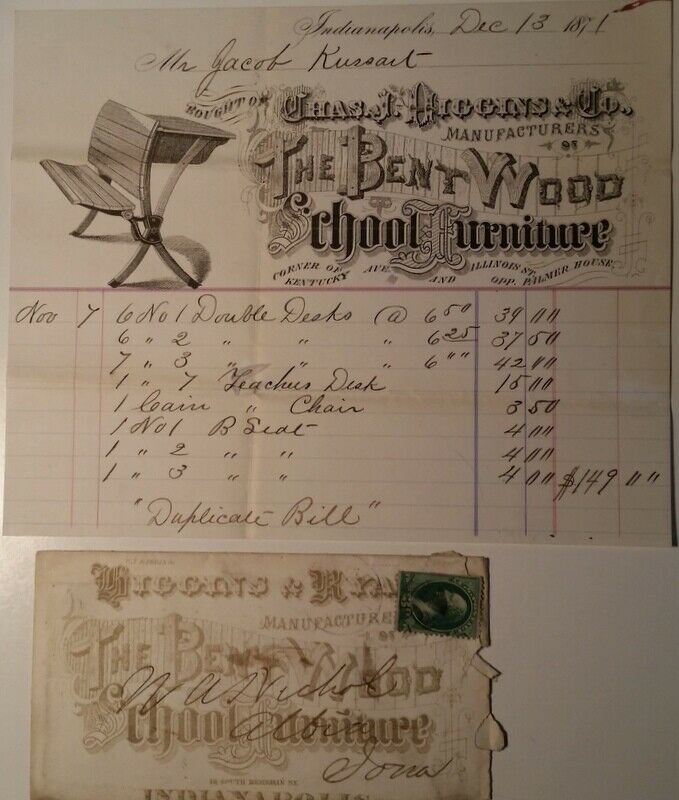 Indianapolis, Dec 13 1871
Mr Jacob Kussart
BOUGHT OF CHAS. J. HIGGINS & CO.
MANUFACTURERS OF
THE BENT WOOD
School Furniture
CORNER OF KENTUCKY AVE. AND ILLINOIS ST. OPP. PALMER HOUSE.
Nov 7 6 No 1 Double Desks @ 6 50 39 00
6 " 2 " " " 6 25 37 50
7 " 3 " " " 6 "" 42 00
1 " 7 Teachers Desk 15 00
1 Cain " Chair 3 50
1 No 1 B Seat 4 00
1 " 2 " " 4 00
1 " 3 " " 4 00 $149 " "
"Duplicate Bill"
HIGGINS & RYA
MANUFACTURE
OF
THE BENT WOOD
School Furniture
W A Nichol
Albia
Iowa
SOUTH MERIDIAN ST.
INDIANAPOLIS